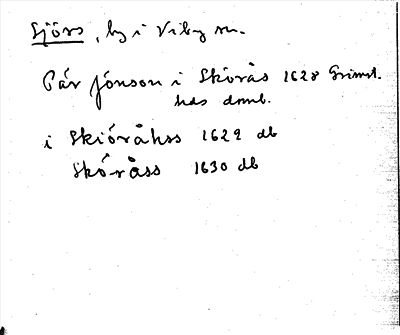 Sjörs, by i Viby sn.
Pär Jónson i Skörås 1628 Grimst.
hds domb.
i Skiöråhss 1629 db
Skóråss 1630 db